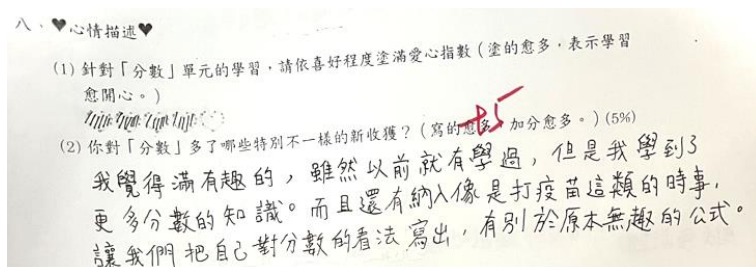 八、♥心情描述♥
(1) 針對「分數」單元的學習，請依喜好程度塗滿愛心指數（塗的愈多，表示學習
愈開心。）
(2) 你對「分數」多了哪些特別不一樣的新收獲？（寫的愈多，加分愈多。）(5%)
+5
我覺得滿有趣的，雖然以前就有學過，但是我學到了
更多分數的知識。而且還有納入像是打疫苗這類的時事，
讓我們把自己對分數的看法寫出，有別於原本無趣的公式。